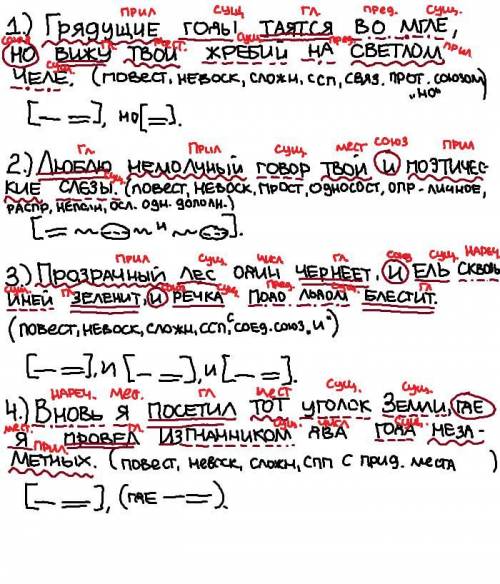 прил сущ гл. пред. сущ.
1) Грядущие годы таятся во мгле,
союз гл. мест. сущ. пред. прил
но вижу твой жребий на светлом
сущ.
челе. (повест, невоск, сложн, ссп, связ. прот. союзом
"но"
[— =], но[=].
гл. прил сущ. мест союз прил
2.) Люблю немолчный говор твой и поэтичес-
сущ.
кие слезы. (повест, невоск, прост, односост, опр-личное,
распр, неполн, осл. одн. дополн.)
[= ~ и ~].
прил сущ. числ гл. союз сущ. нареч.
3) Прозрачный лес один чернеет, и ель сквозь
сущ. гл. союз сущ. пред. сущ. гл
иней зеленит, и речка подо льдом блестит.
(повест, невоск, сложн, ссп, с соед. союз "и")
[— =], и [— =], и [— =].
нареч. мес. гл мест сущ. сущ.
4.) Вновь я посетил тот уголок земли, где
мест. гл сущ. числ сущ.
я провел изгнанником два года неза-
прил
метных. (повест, невоск, сложн, спп с прид. места)
[— =], (где — =).